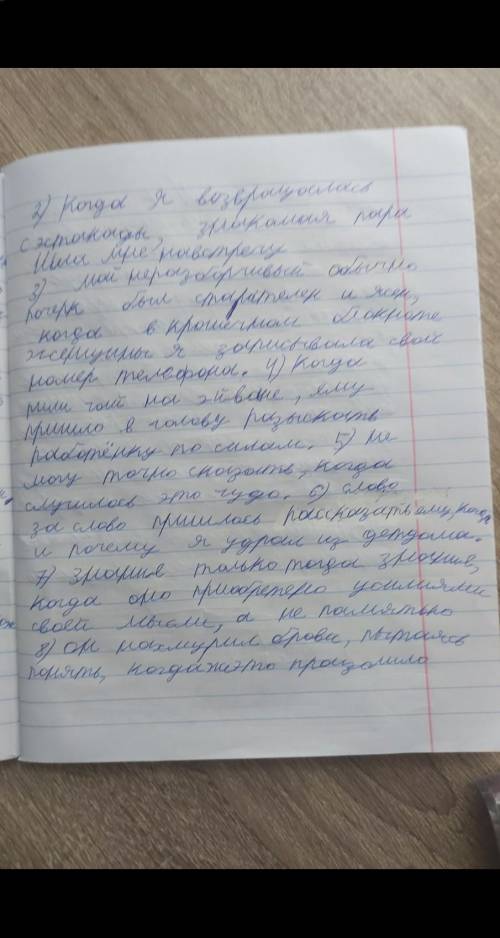 2) Когда я возвращалась
с эстакады, знакомая пара
шла мне навстречу
3) мой неразборчивый обычно
почерк был старателен и ясен,
когда в крошечном блокноте
женщины я записывала свой
номер телефона. 4) Когда
пили чай на айване, ему
пришло в голову разыскать
работёнку по силам. 5) не
могу точно сказать, когда
случилось это чудо. 6) слово
за слово пришлось рассказать ему, когда
и почему я удрал из детдома.
7) знание только тогда знание,
когда оно приобретено усилиями
своей мысли, а не памятью
8) он нахмурил брови, пытаясь
понять, когда же это произошло